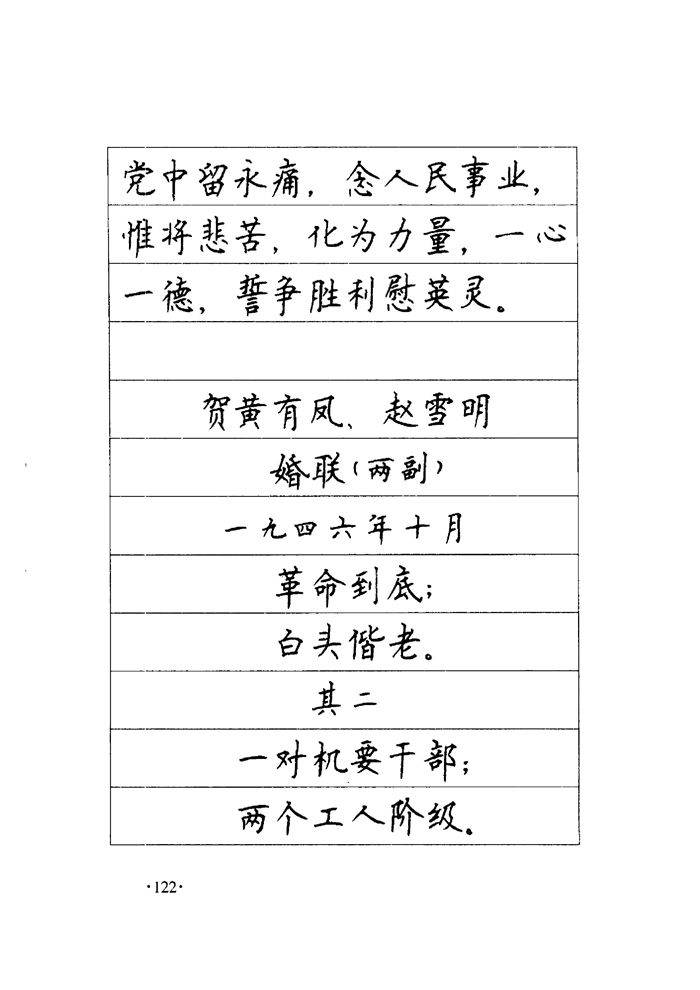 党中留永痛，念人民事业，
惟将悲苦，化为力量，一心
一德，誓争胜利慰英灵。
贺黄有凤、赵雪明
婚联（两副）
一九四六年十月
革命到底；
白头偕老。
其二
一对机要干部；
两个工人阶级。
·122·